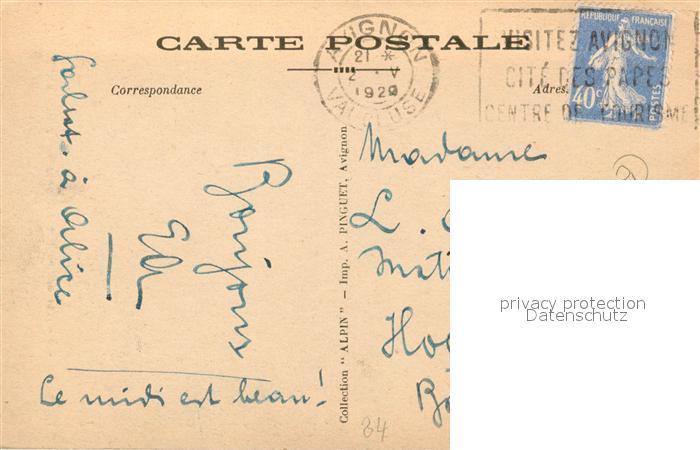 CARTE POSTALE
Correspondance
Adres
AVIGNON
21 *
2 - V
1929
VAUCLUSE
VISITEZ AVIGNON
CITÉ DES PAPES
CENTRE DE TOURISME
REPUBLIQUE FRANÇAISE
40c
POSTES
Salut à Alice
Bonjour
Le midi est beau!
Collection "ALPIN" — Imp. A. PINGUET, Avignon
Madame
L.
84
privacy protection
Datenschutz